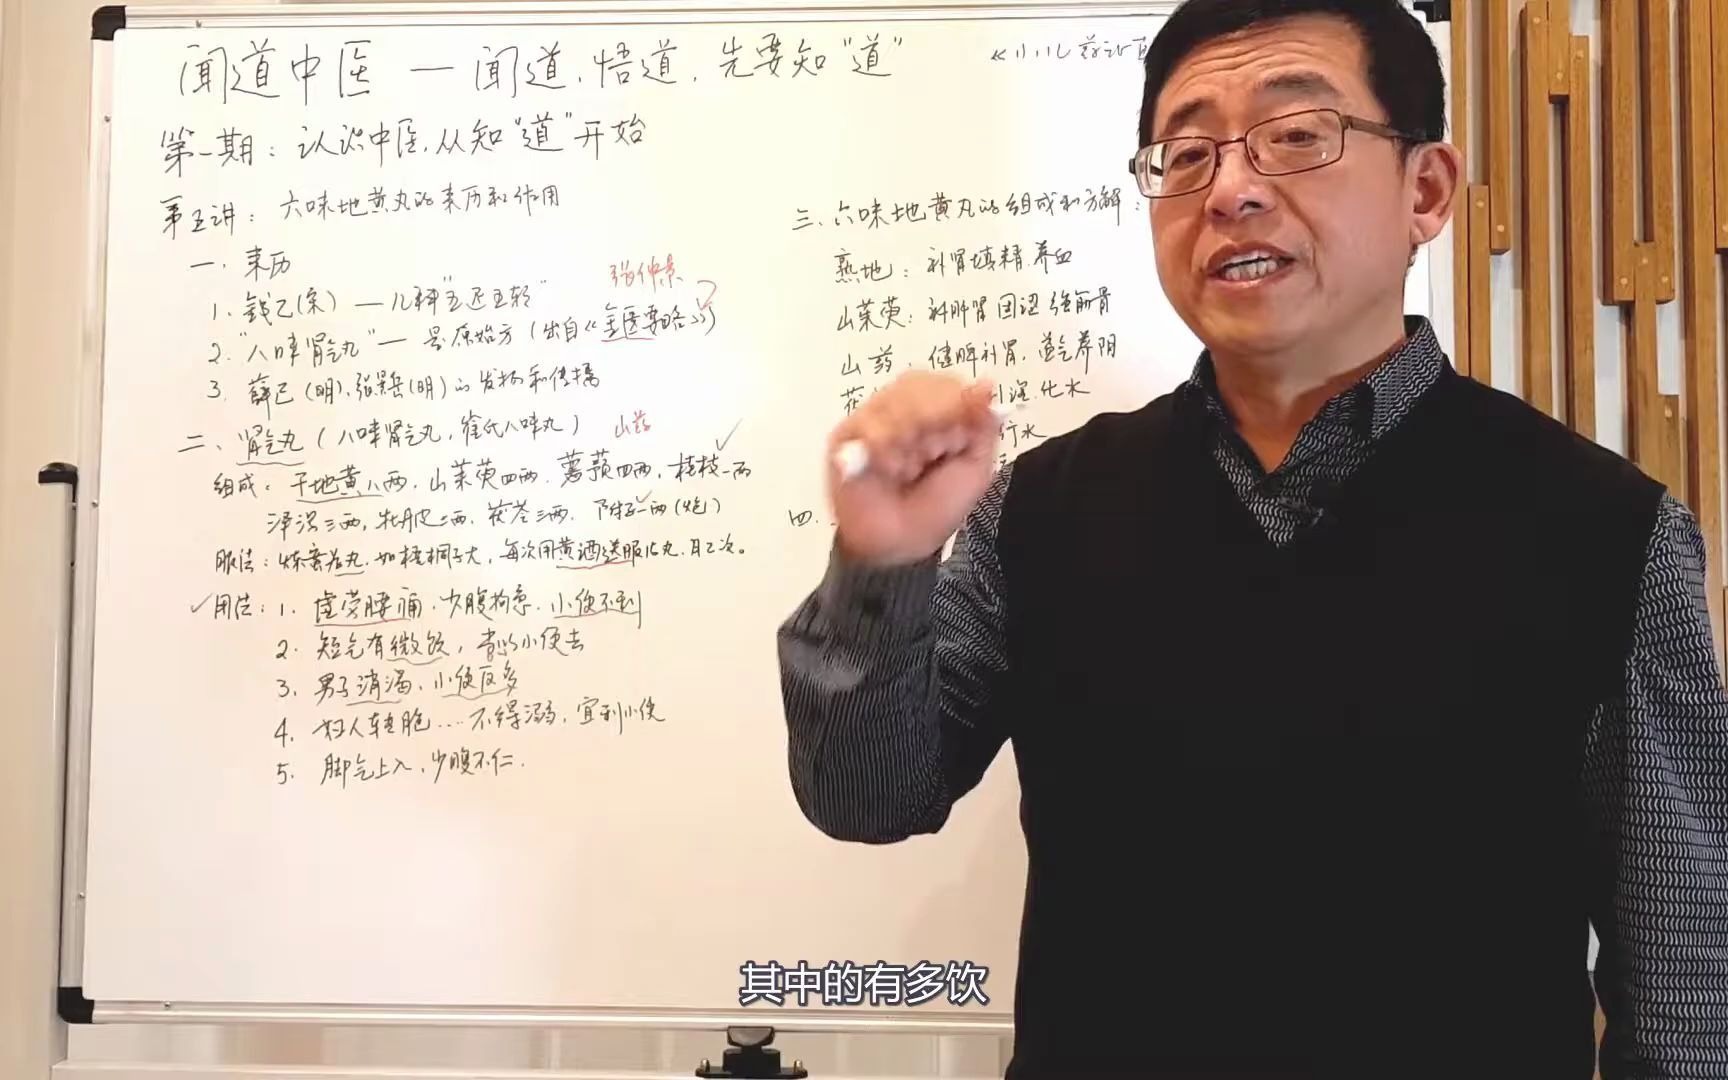 闻道中医 — 闻道,悟道,先要知"道"
《小儿药证直
第一期:认识中医,从知"道"开始
第五讲:六味地黄丸的来历和作用
一、来历
1. 钱乙(宋) — 儿科"五迟五软"
张仲景
2. "八味肾气丸" — 是原始方(出自《金匮要略》)
3. 薛己(明)、张景岳(明)的发扬和传播
二、肾气丸(八味肾气丸,崔氏八味丸)
山药
组成:干地黄八两,山茱萸四两,薯蓣四两,桂枝一两
泽泻三两,牡丹皮三两,茯苓三两,附子一两(炮)
服法:炼蜜为丸,如梧桐子大,每次用黄酒送服15丸,日2次。
✓用法:1. 虚劳腰痛,少腹拘急,小便不利
2. 短气有微饮,当以小便去
3. 男子消渴,小便反多
4. 妇人转胞....不得溺,宜利小便
5. 脚气上入,少腹不仁.
三、六味地黄丸的组成和方解:
熟地:补肾填精,养血
山茱萸:补肝肾 固涩 强筋骨
山药:健脾补肾,益气养阴
茯 利湿,化水
行水
四.
其中的有多饮